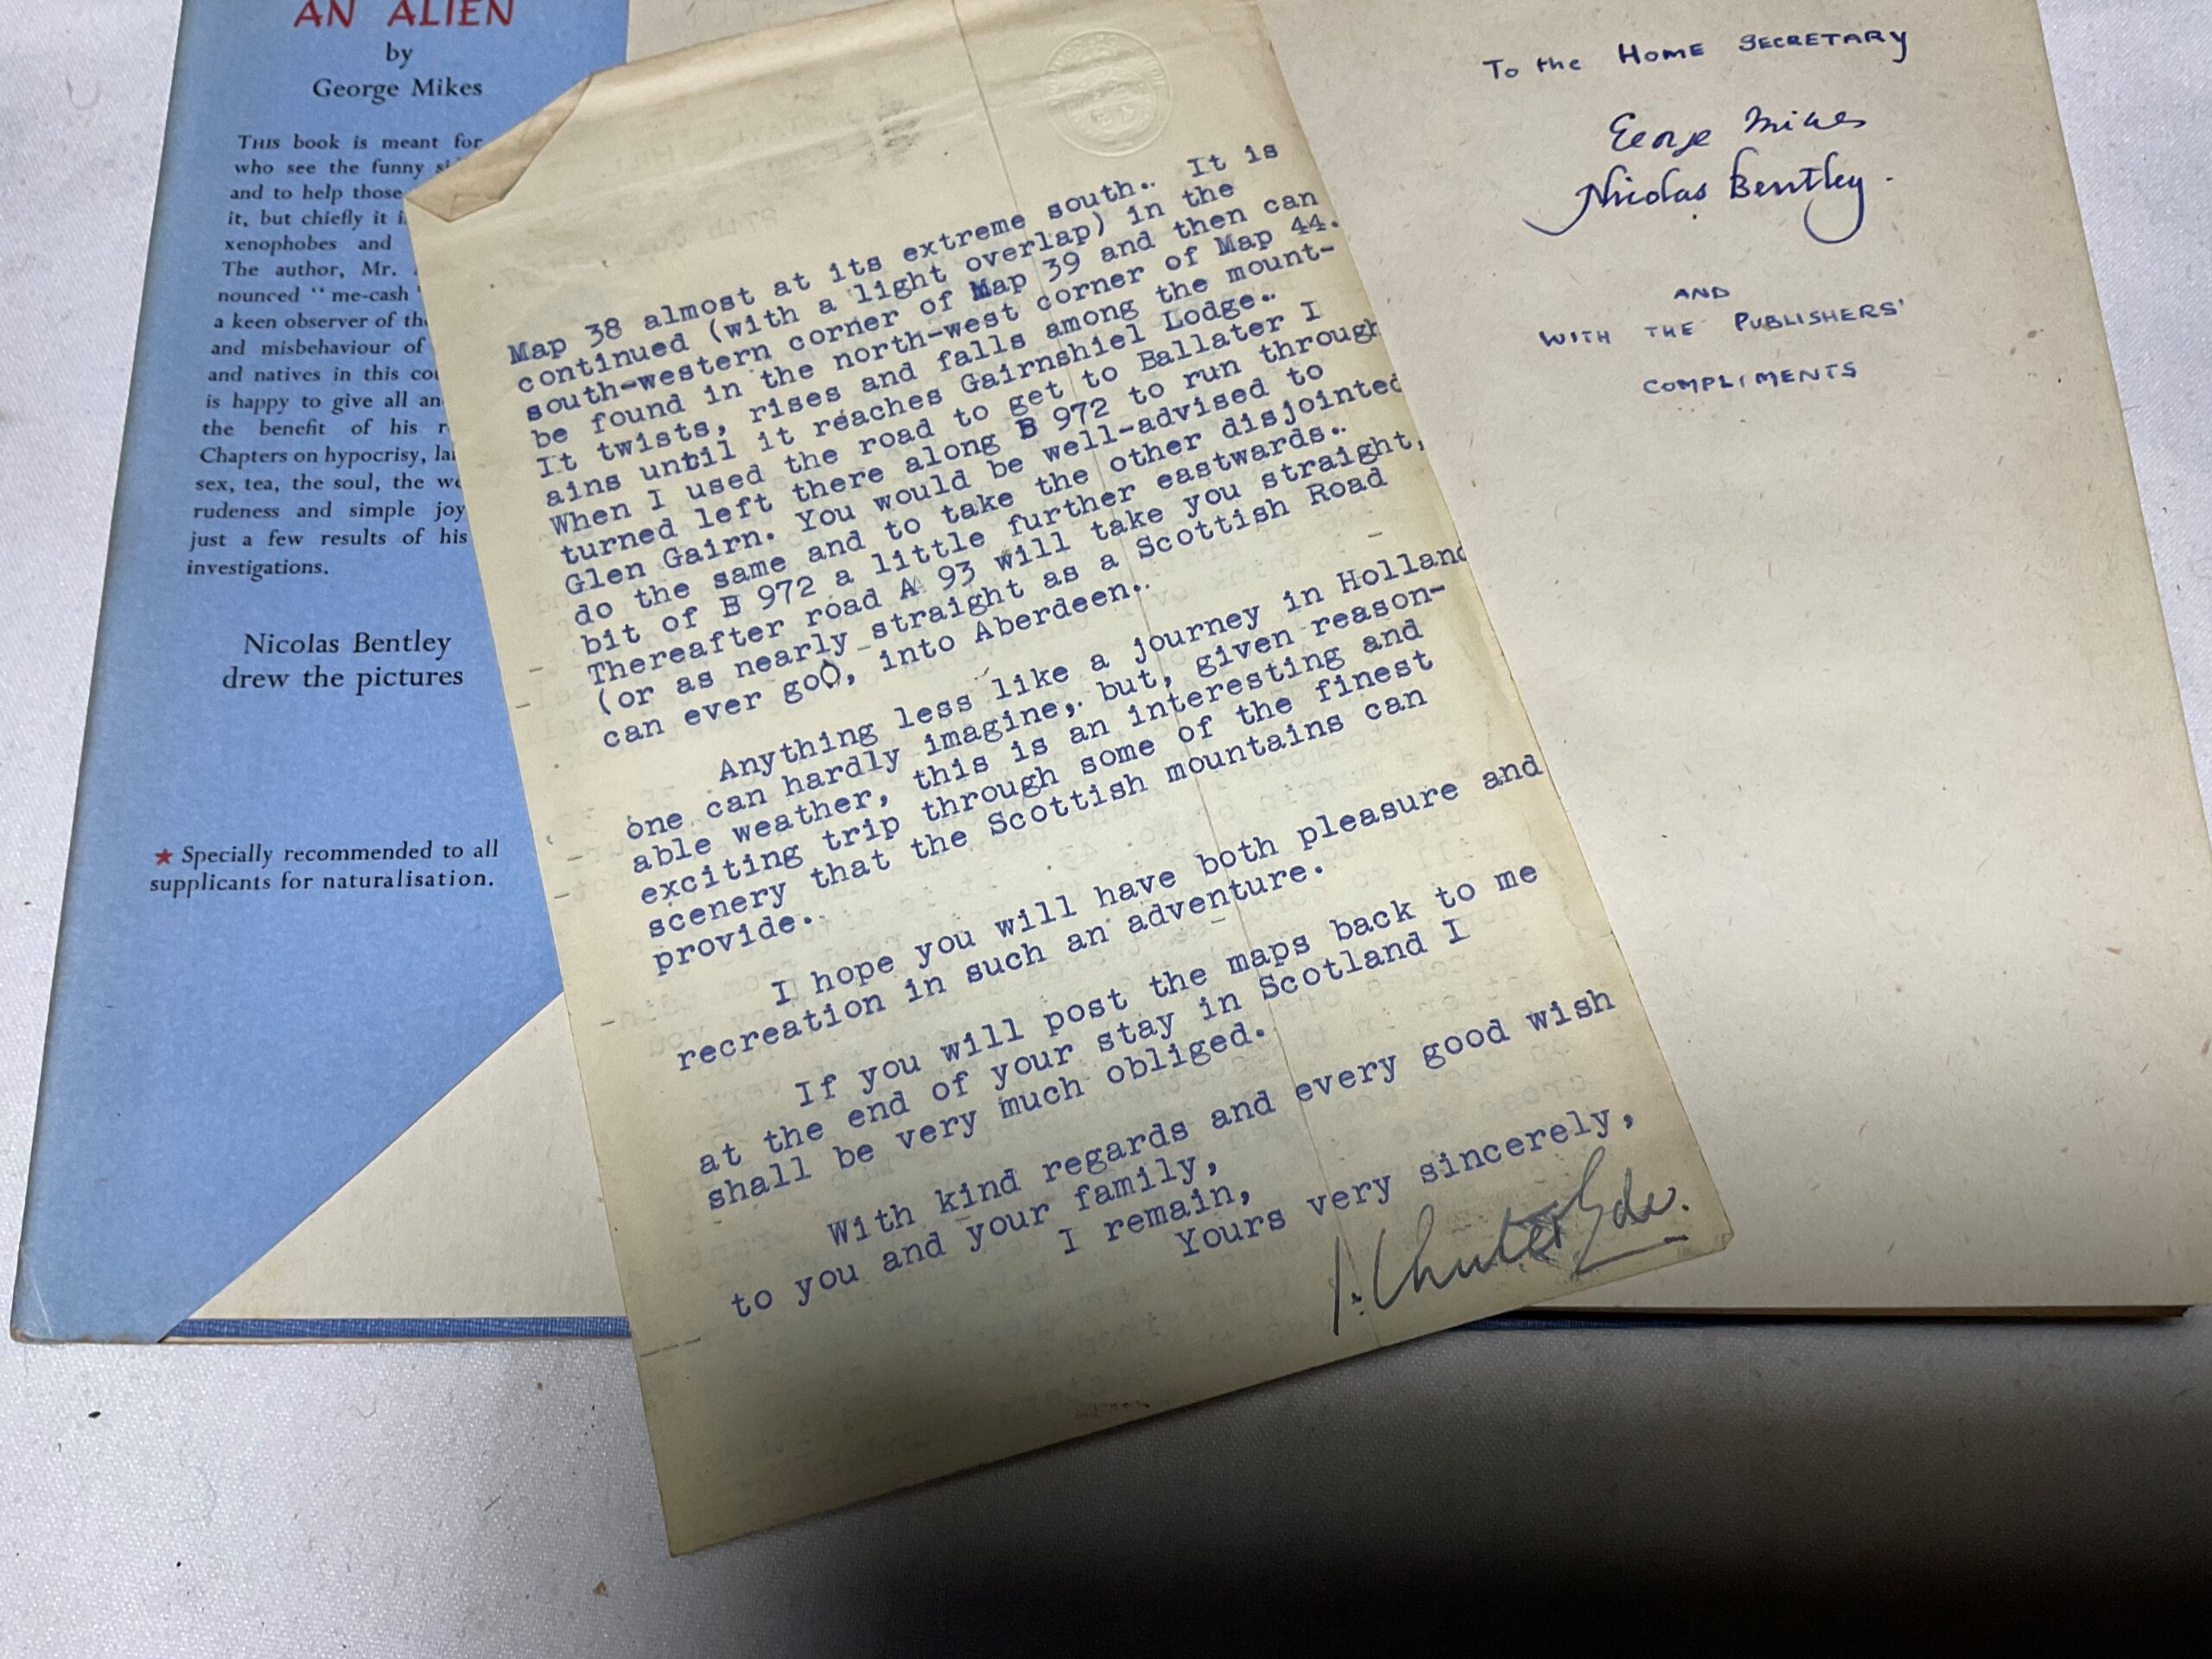 AN ALIEN
by
George Mikes
THIS book is meant for
who see the funny
and to help those
it, but chiefly it
xenophobes and
The author, Mr.
nounced "me-cash
a keen observer of
and misbehaviour of
and natives in this
is happy to give all
the benefit of his
Chapters on hypocrisy,
sex, tea, the soul, the
rudeness and simple
just a few results of his
investigations.
Nicolas Bentley
drew the pictures
★ Specially recommended to all
supplicants for naturalisation.
Map 38 almost at its extreme south.. It is
continued (with a light overlap) in the
south-western corner of Map 39 and then can
be found in the north-west corner of Map 44.
It twists, rises and falls among the mount-
ains until it reaches Gairnshiel Lodge..
When I used the road to get to Ballater I
turned left there along B 972 to run through
Glen Gairn. You would be well-advised to
do the same and to take the other disjointed
bit of B 972 a little further eastwards..
Thereafter road A 93 will take you straight,
(or as nearly straight as a Scottish Road
can ever goO, into Aberdeen..
Anything less like a journey in Holland
one can hardly imagine,. but, given reason-
able weather, this is an interesting and
exciting trip through some of the finest
scenery that the Scottish mountains can
provide..
I hope you will have both pleasure and
recreation in such an adventure.
If you will post the maps back to me
at the end of your stay in Scotland I
shall be very much obliged.
With kind regards and every good wish
to you and your family,
I remain,
Yours very sincerely,
J. Chuter Ede.
To the HOME SECRETARY
George Mikes
Nicolas Bentley.
AND
WITH THE PUBLISHERS'
COMPLIMENTS